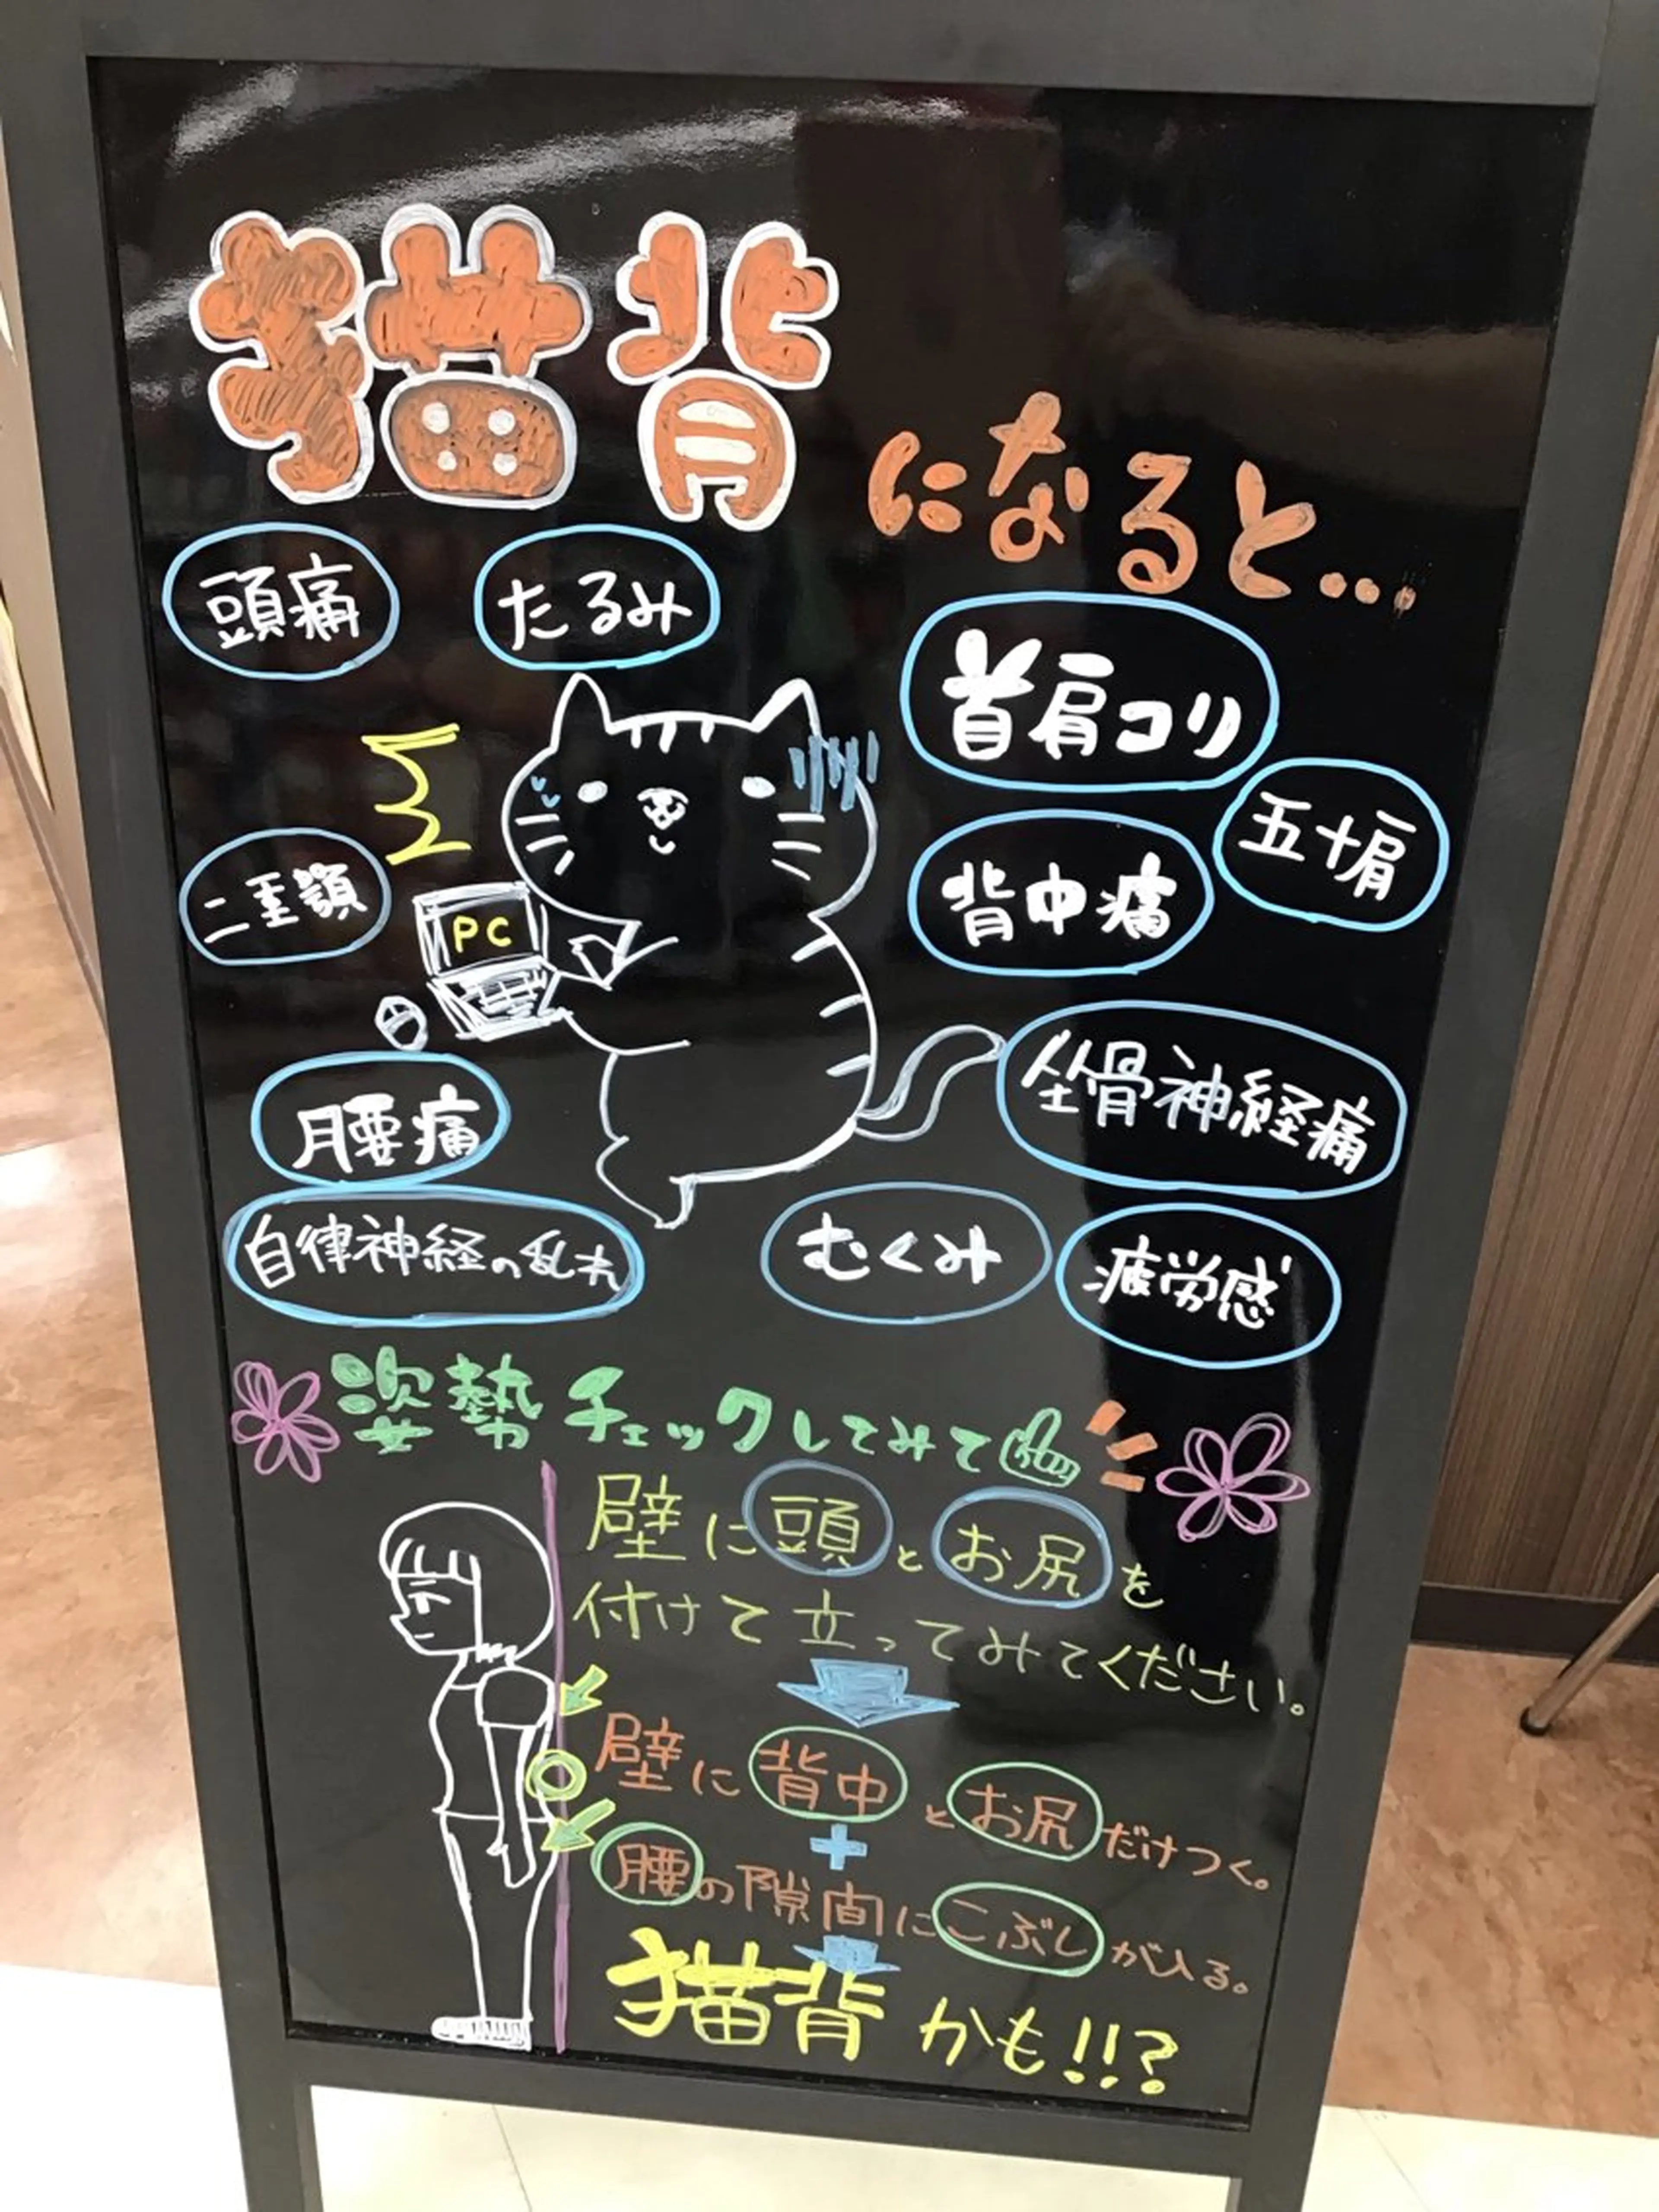 猫背になると…
頭痛
たるみ
首肩コリ
五十肩
背中痛
二重顎
PC
坐骨神経痛
腰痛
自律神経の乱れ
むくみ
疲労感
姿勢チェックしてみて
壁に頭とお尻を
付けて立ってみてください。
壁に背中とお尻だけつく。
+
腰の隙間にこぶしが入る。
猫背かも!!?